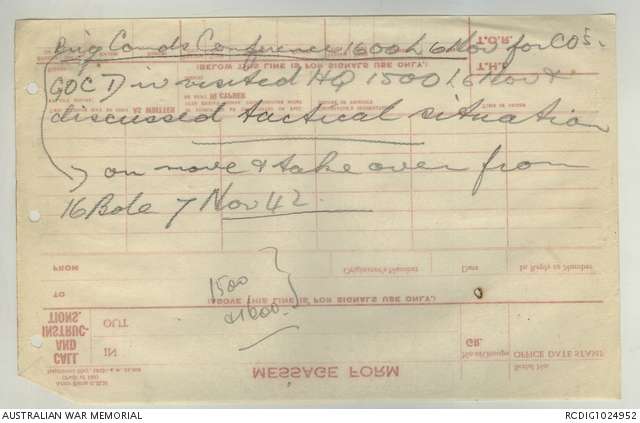 Brig Comds Conference 1600 L 6 Nov for COs.
GOC Div visited HQ 1500 L 6 Nov &
discussed tactical situation
on move & take over from
16 Bde 7 Nov 42.
1500
&1600.
T.O.R.
(BELOW THIS LINE IS FOR SIGNALS USE ONLY.)
T.H.I.
AS WRITTEN
IN CIPHER
FROM
Originator's Number
Date
In Reply to Number
TO
(ABOVE THIS LINE IS FOR SIGNALS USE ONLY.)
CALL
AND
INSTRUC-
TIONS.
OUT
IN
GR.
OFFICE DATE STAMP
Serial No.
MESSAGE FORM
AUSTRALIAN WAR MEMORIAL
RCDIG1024952